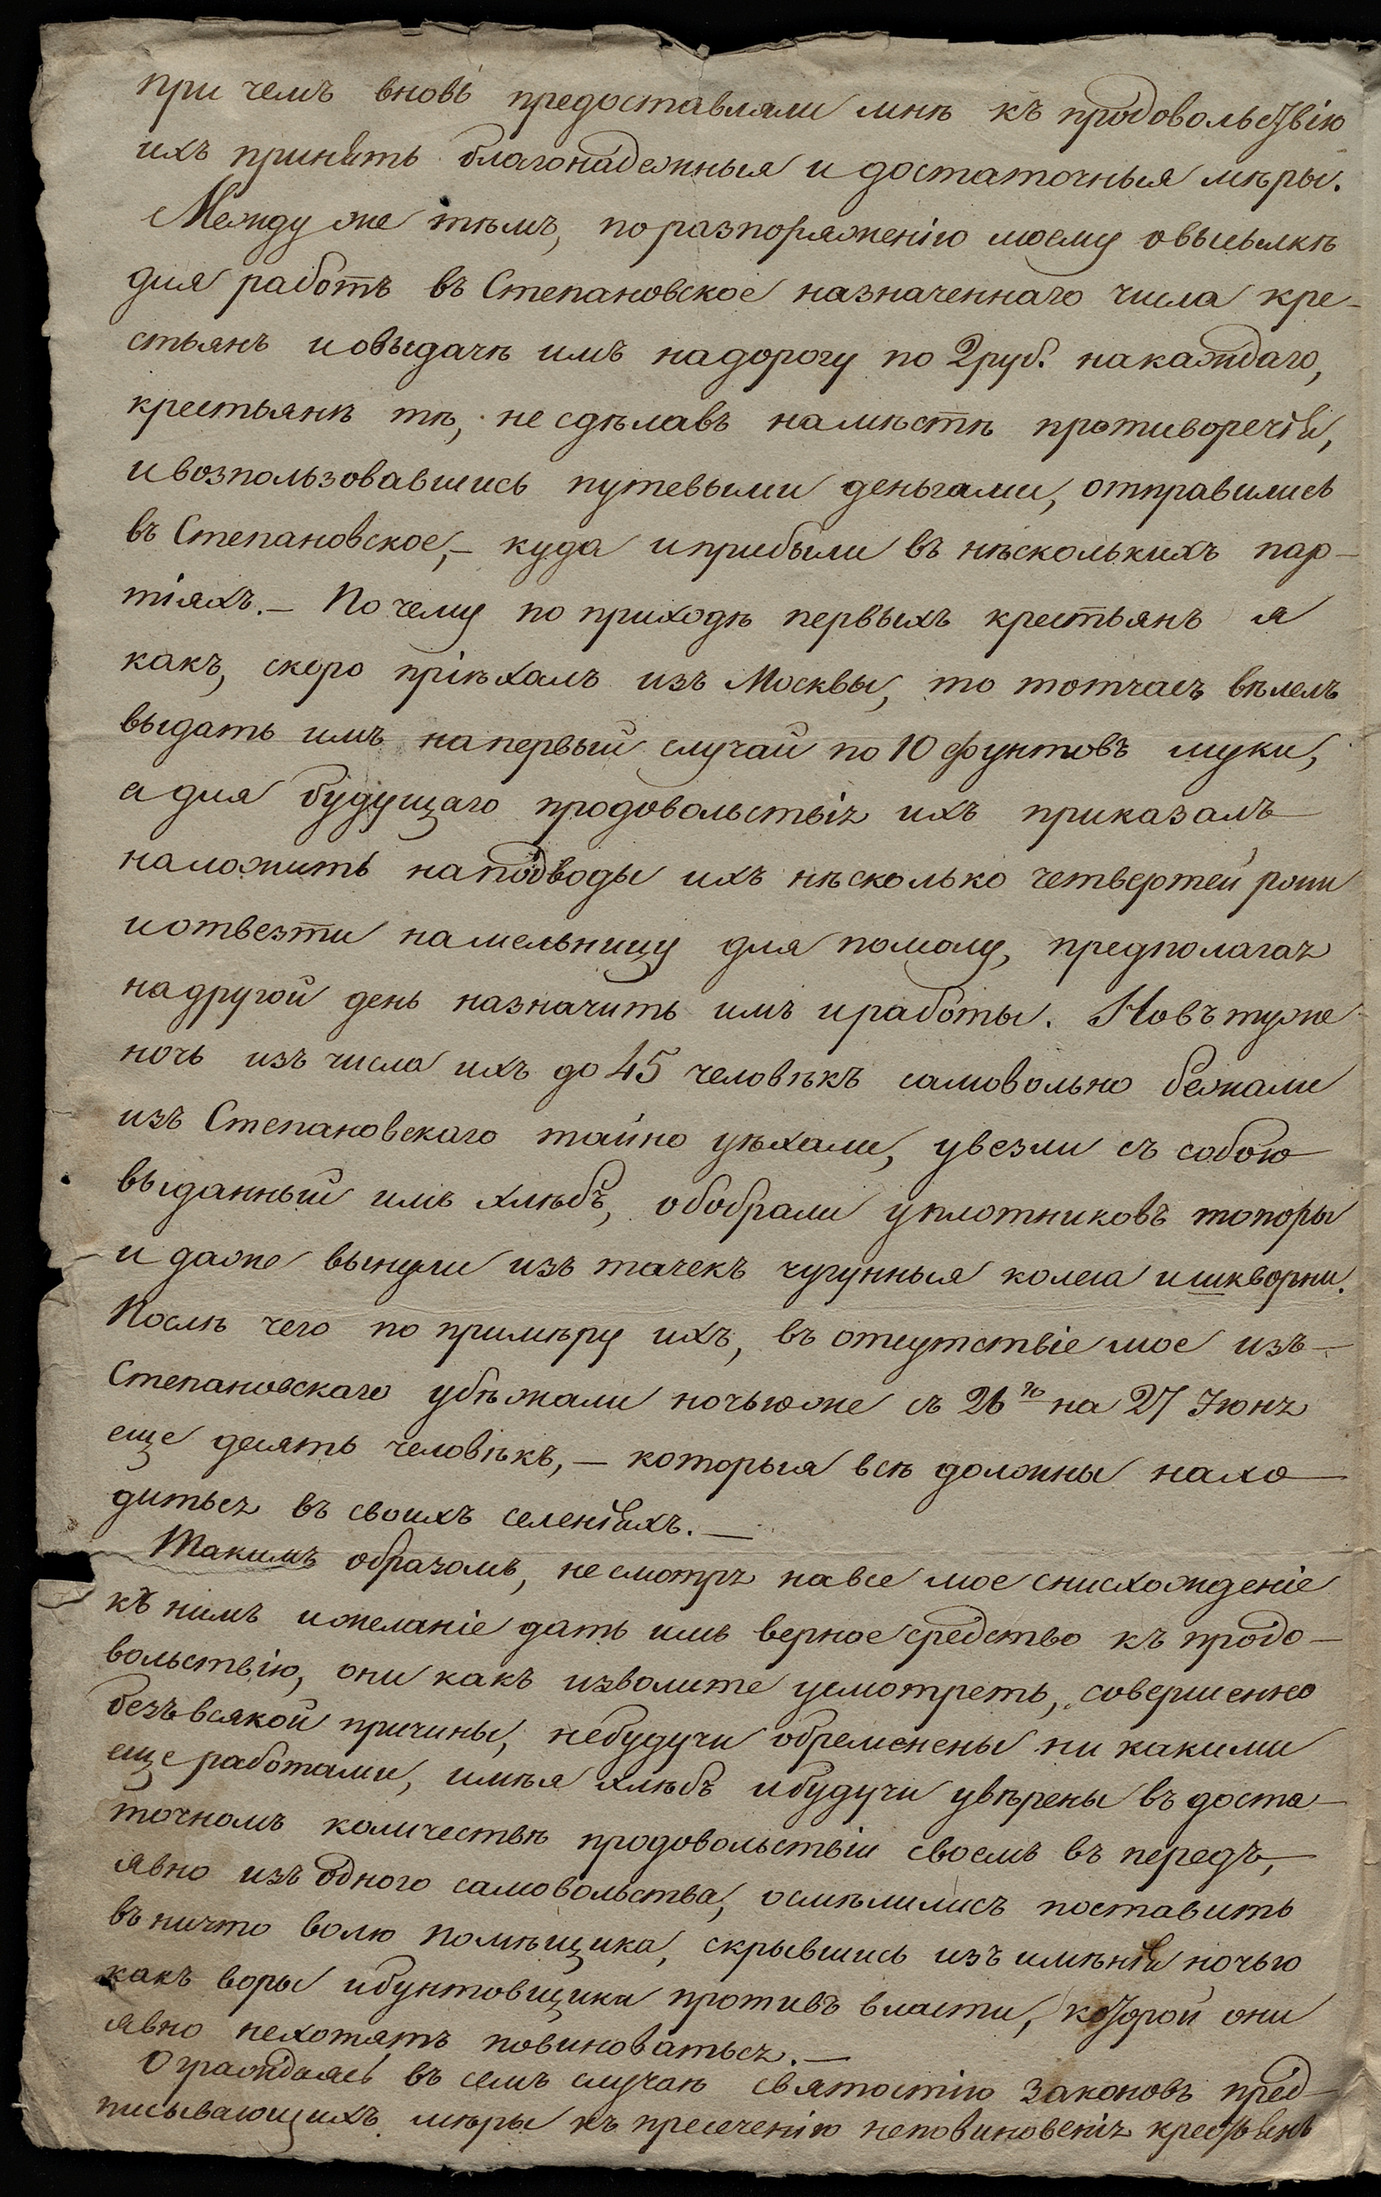 при чемъ вновь предоставляли мнѣ къ продовольствію
ихъ принять благонадежныя и достаточныя мѣры.
Между же тѣмъ, по разпоряженію моему о высылкѣ
для работъ въ Степановское назначеннаго числа кре-
стьянъ и о выдачѣ имъ на дорогу по 2 руб. на каждаго,
крестьянѣ тѣ, не сдѣлавъ на мѣстѣ противоречій,
и возпользовавшись путевыми деньгами, отправились
въ Степановское, – куда и прибыли въ нѣсколькихъ пар-
тіяхъ. – По чему по приходѣ первыхъ крестьянъ я
какъ, скоро пріѣхалъ изъ Москвы, то тотчасъ вѣлелъ
выдать имъ на первый случай по 10 фунтовъ муки,
а для будущаго продовольствія ихъ приказалъ
наложить на подводы ихъ нѣсколько четвертей ржи
и отвезти на мельницу для помолу, предполагая
на другой день назначить имъ и работы. Но въ туже
ночь изъ числа ихъ до 45 человѣкъ самовольно бежали
изъ Степановскаго тайно уѣхали, увезли съ собою
выданный имъ хлѣбъ, обобрали у плотниковъ топоры
и даже вынули изъ тачекъ чугунныя колеса и шкворни.
Послѣ чего по примѣру ихъ, въ отсутствіе мое изъ –
Степановскаго убѣжали ночью же съ 26го на 27 Іюня
еще десять человѣкъ, – которыя всѣ должны нахо –
диться въ своихъ селеніяхъ. –
Такимъ образомъ, не смотря на все мое снисхожденіе
къ нимъ и желаніе дать имъ верное средство къ продо –
вольствію, они какъ изволите усмотреть, совершенно
безъ всякой причины, небудучи обременены ни какими
еще работами, имѣя хлѣбъ и будучи увѣрены въ доста –
точномъ количествѣ продовольствіи своемъ въ передъ,
явно изъ одного самовольства, осмѣлились поставить
въ ничто волю Помѣщика, скрывшись изъ имѣнія ночью
какъ воры и бунтовщики противъ власти, которой они
явно нехотятъ повиноваться. –
Ограждаясь въ семъ случаѣ святостію Законовъ пред –
писывающихъ мѣры къ пресеченію неповиновенія крестьянъ